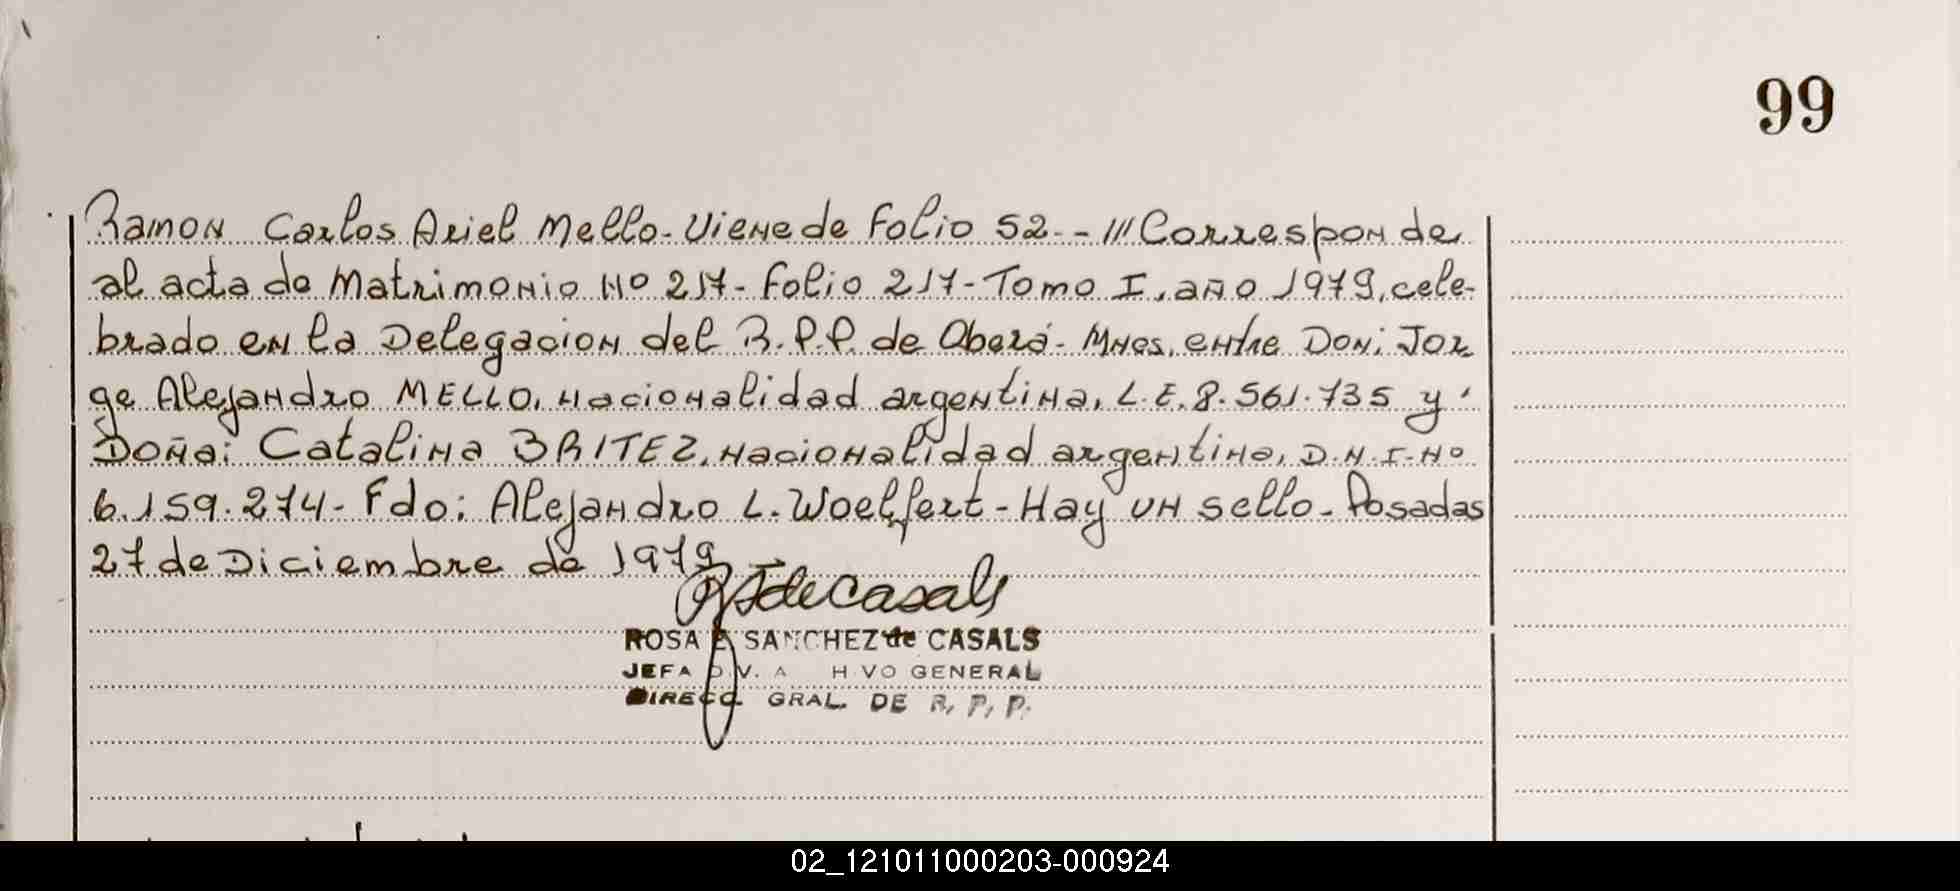 99
Ramon Carlos Ariel Mello. Viene de Folio 52.- /// Corresponde
al acta de Matrimonio Nº 217- Folio 217- Tomo I, año 1979, cele-
brado en la Delegacion del R.P.P. de Oberá- Mnes, entre Don: Jor
ge Alejandro MELLO, nacionalidad argentina, L.E. 8.561.735 y
Doña: Catalina BRITEZ, nacionalidad argentina, D.N.I. Nº
6.159.274- Fdo: Alejandro L. Woelfert- Hay un sello- Posadas
27 de Diciembre de 1979
de Casals
ROSA E. SANCHEZ de CASALS
JEFA DIV. A HIVO GENERAL
DIRECC. GRAL. DE R, P, P.
02_121011000203-000924